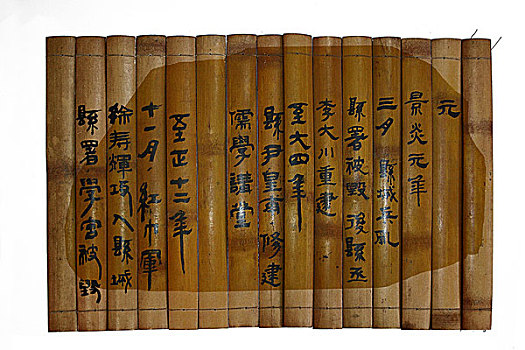 元
景炎元年
三月 縣城兵亂
縣署被毀 後縣丞
李大川重建
至大四年
縣尹皇甫 修建
儒學講堂
至正十二年
十一月 紅巾軍
徐寿輝攻入縣城
縣署 學宮被毀